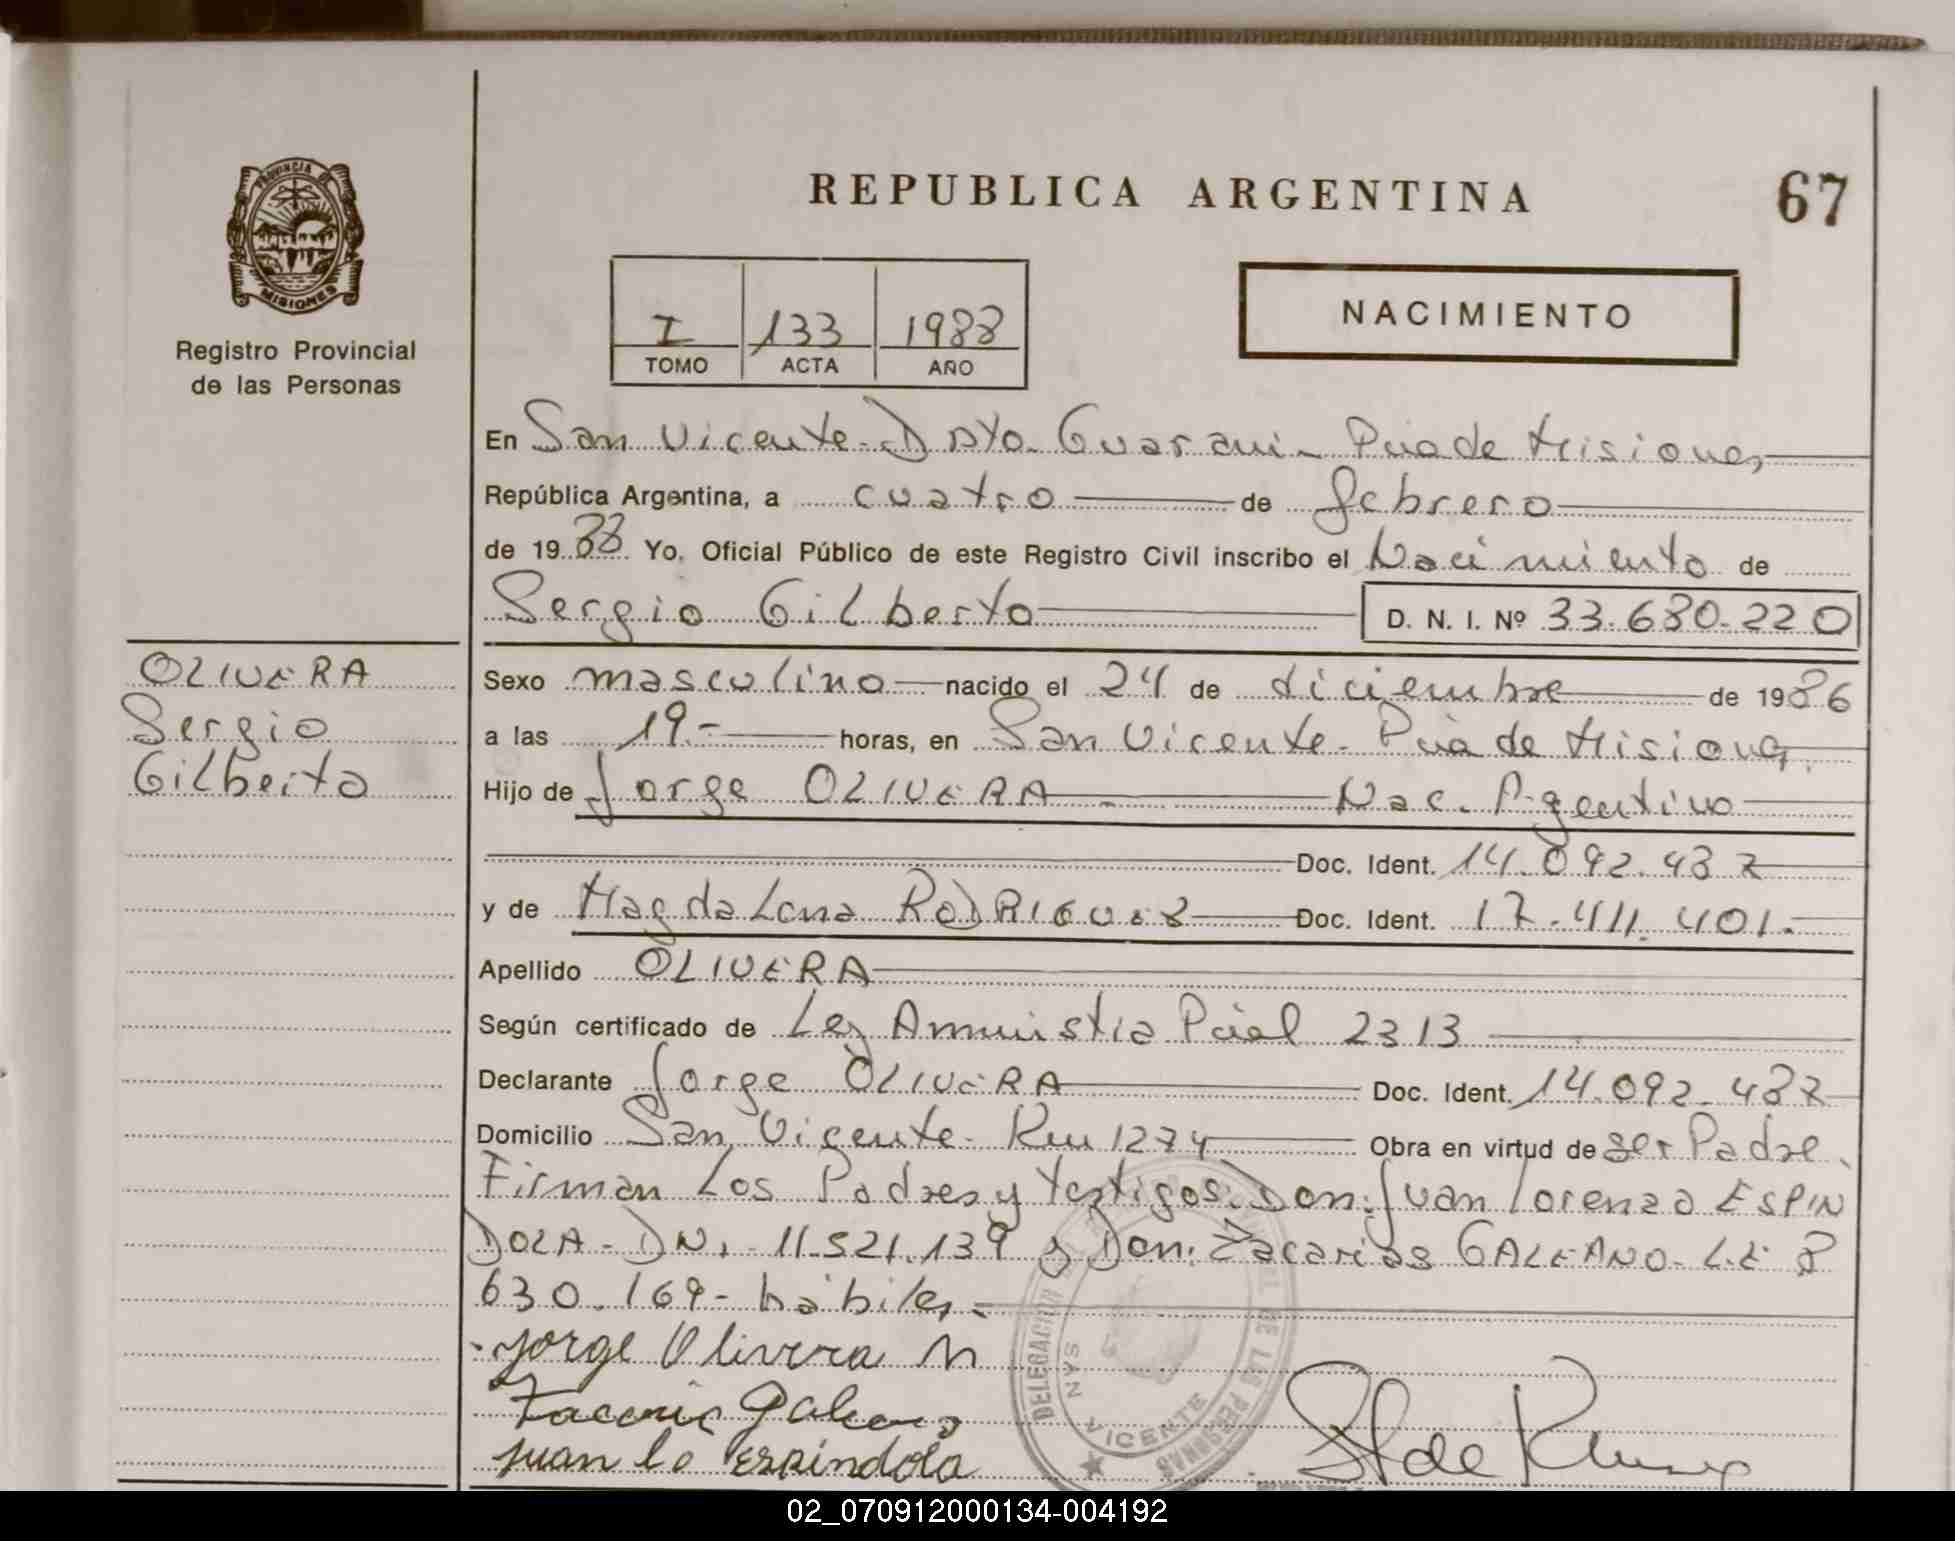 REPUBLICA ARGENTINA
67
PROVINCIA DE
MISIONES
Registro Provincial
de las Personas
I 133 1988
TOMO ACTA AÑO
NACIMIENTO
En San Vicente - Dpto. Guarani - Pcia de Misiones
República Argentina, a cuatro de febrero
de 19 88 Yo, Oficial Público de este Registro Civil inscribo el Nacimiento de
Sergio Gilberto D. N. I. Nº 33.680.220
OLIVERA
Sergio
Gilberto
Sexo masculino nacido el 24 de diciembre de 1986
a las 19.- horas, en San Vicente - Pcia de Misiones
Hijo de Jorge OLIVERA Nac. Argentino
Doc. Ident. 14.092.487
y de Magdalena RODRIGUEZ Doc. Ident. 17.411.401.-
Apellido OLIVERA
Según certificado de Ley Amnistia Pcial 2313
Declarante Jorge OLIVERA Doc. Ident. 14.092.487
Domicilio San Vicente - Km 1274 Obra en virtud de ser Padre.
Firman Los Padres y testigos Don: Juan Lorenzo ESPIN
DOLA - DNI - 11.521.139 y Don: Zacarias GALEANO - L.E 8
630.169 - hábiles -
Jorge Olivera
Galeano
Juan Lo Espindola
DELEGACION
DE LAS PERSONAS
SAN VICENTE
02_070912000134-004192